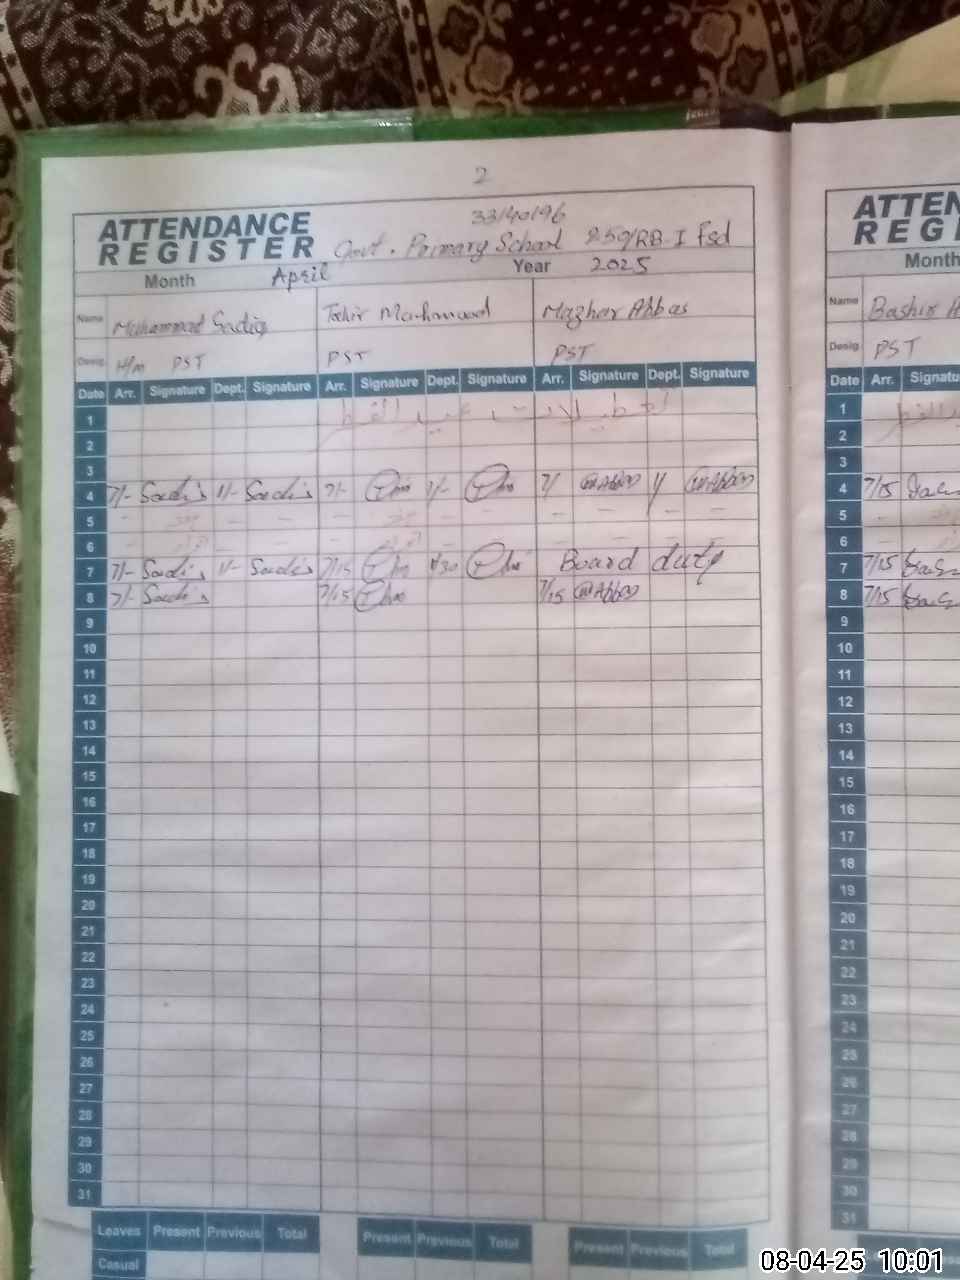 2
ATTENDANCE REGISTER
33140196
Govt. Primary School 259/RB-I Fsd
Month April Year 2025
Name Muhammad Sadiq Tahir Mahmood Mazhar Abbas
Desig. H/m PST PST PST
Date Arr. Signature Dept. Signature Arr. Signature Dept. Signature Arr. Signature Dept. Signature
1 تعطیلات عید الفطر
2
3
4 7/- 1/- 7/- 1/- 7/ 1/
5
6
7 7/- 1/- 7/15 Board duty
8 7/- 7/15 7/15
9
10
11
12
13
14
15
16
17
18
19
20
21
22
23
24
25
26
27
28
29
30
31
Leaves Present Previous Total Present Previous Total Present Previous Total
Casual
ATTEN
REGI
Month
Name Bashir A
Desig. PST
Date Arr. Signatu
1
2
3
4 7/15
5
6
7 7/15
8 7/15
9
10
11
12
13
14
15
16
17
18
19
20
21
22
23
24
25
26
27
28
29
30
31
08-04-25 10:01